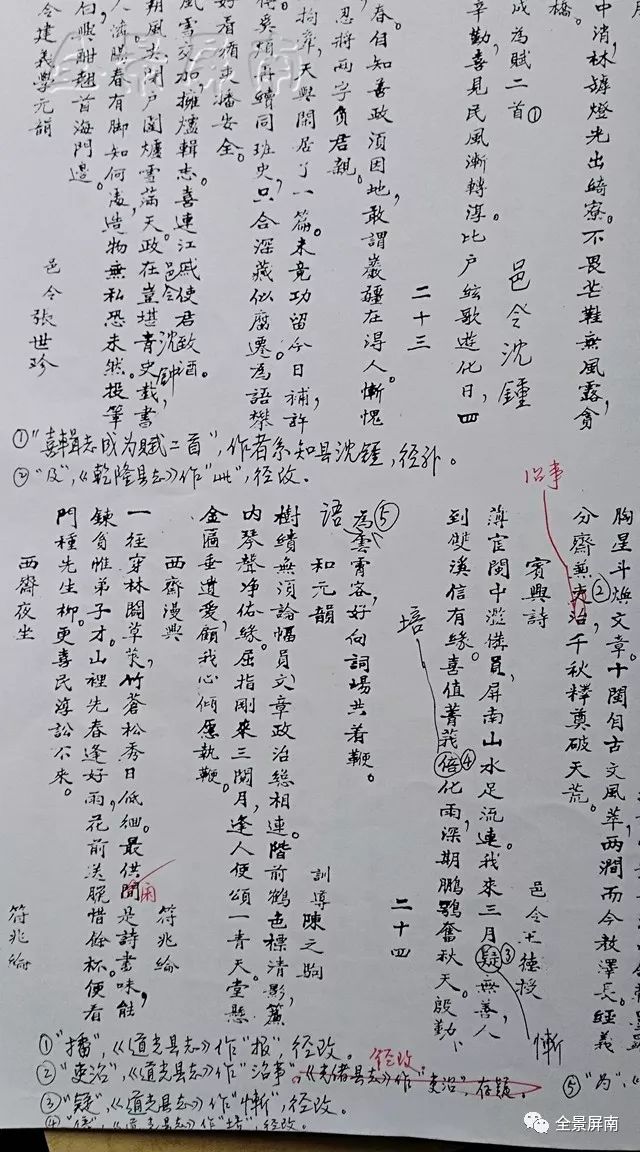 橋。
中消，林罅燈光出綺寮。不畏芒鞋無風露，貪
成為賦二首①
邑令沈鍾
辛勤，喜見民風漸轉淳。比户絃歌遊化日，四
二十三
春。自知善政須因地，敢謂巖疆在得人。慚愧
忍將兩字負君親。
拘牽，天與閑居了一篇。未竟功留今日補，許
得奚頻再續同班史，只合深藏似腐遷。為語桀
好看稍吏播安全。
風雪交加，擁爐輯志，喜連江戚使君致酒。
邑令沈鍾
朔風尖閉户圍爐雪滿天。政在豈堪青史載，書
人濟。暖春有脚知何處，造物無私恐未然。投筆
白。興酣翹首海門邊。
令建義學元韻
邑令張世珍
①“喜輯志成為賦二首”，作者系知县沈鍾，径补。
②“及”，《乾隆县志》作“此”，径改。
胸星斗焕文章。十閩自古文風萃，两澗而今教澤長。經義
分齋無吏②治，千秋釋奠破天荒。
治事
賓興詩
邑令王德授
薄宦閩中濫備員，屏南山水足流連。我來三月疑③無善，人
慚
到雙溪信有緣。喜值菁莪倍④化雨，深期鵬鶚奮秋天。殷勤
培
二十四
語
為⑤雲霄客，好向詞場共着鞭。
和元韻
訓導陳之駒
樹績無須論幅員，文章政治總相連。階前鶴色標清影，簾
内琴聲净俗緣。屈指剛來三閱月，逢人便頌一青天。堂懸
金匾垂遺愛，顧我心傾愿執鞭。
西齋漫興
符兆綸
一徑穿林闢草萊，竹蒼松秀日低徊。最供間是詩書味，能
闲
鍊貧惟弟子才。山裡先春逢好雨，花前送晚惜餘杯。便看
門種先生柳，更喜民淳訟不來。
西齋夜坐
符兆綸
①“播”，《道光县志》作“报”，径改。
②“吏治”，《道光县志》作“治事”，《光绪县志》作“吏治”，存疑。
径改
③“疑”，《道光县志》作“慚”，径改。
④“倍”，《道光县志》作“培”，径改。
⑤“为”，《
全景屏南
全景屏南